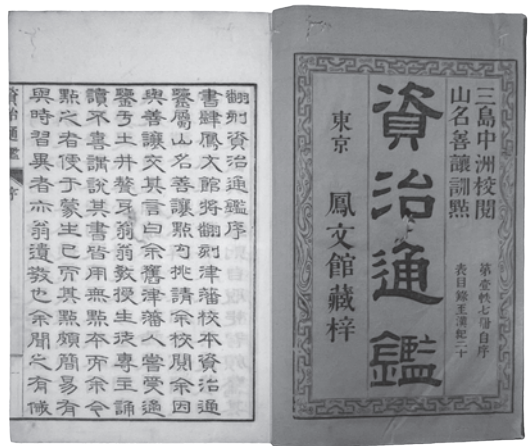 三島中洲校閱
山名善讓訓點
第壹帙七册自序
表目錄至漢紀二十
資治通鑑
東京 鳳文館藏梓
翻刻資治通鑑序
書肆鳳文館將翻刻津藩校本資治通
鑒屬山名善讓點勾挑請余校閱余因
與善讓交其言曰余舊津藩人嘗受通
鑒于土井聱牙翁翁敎授生徒專主誦
讀不喜講說其書皆用無點本而余今
點之者便于蒙生已而其點頗簡易有
與時習異者亦翁遺敎也余聞之有慽
資治通鑑 序